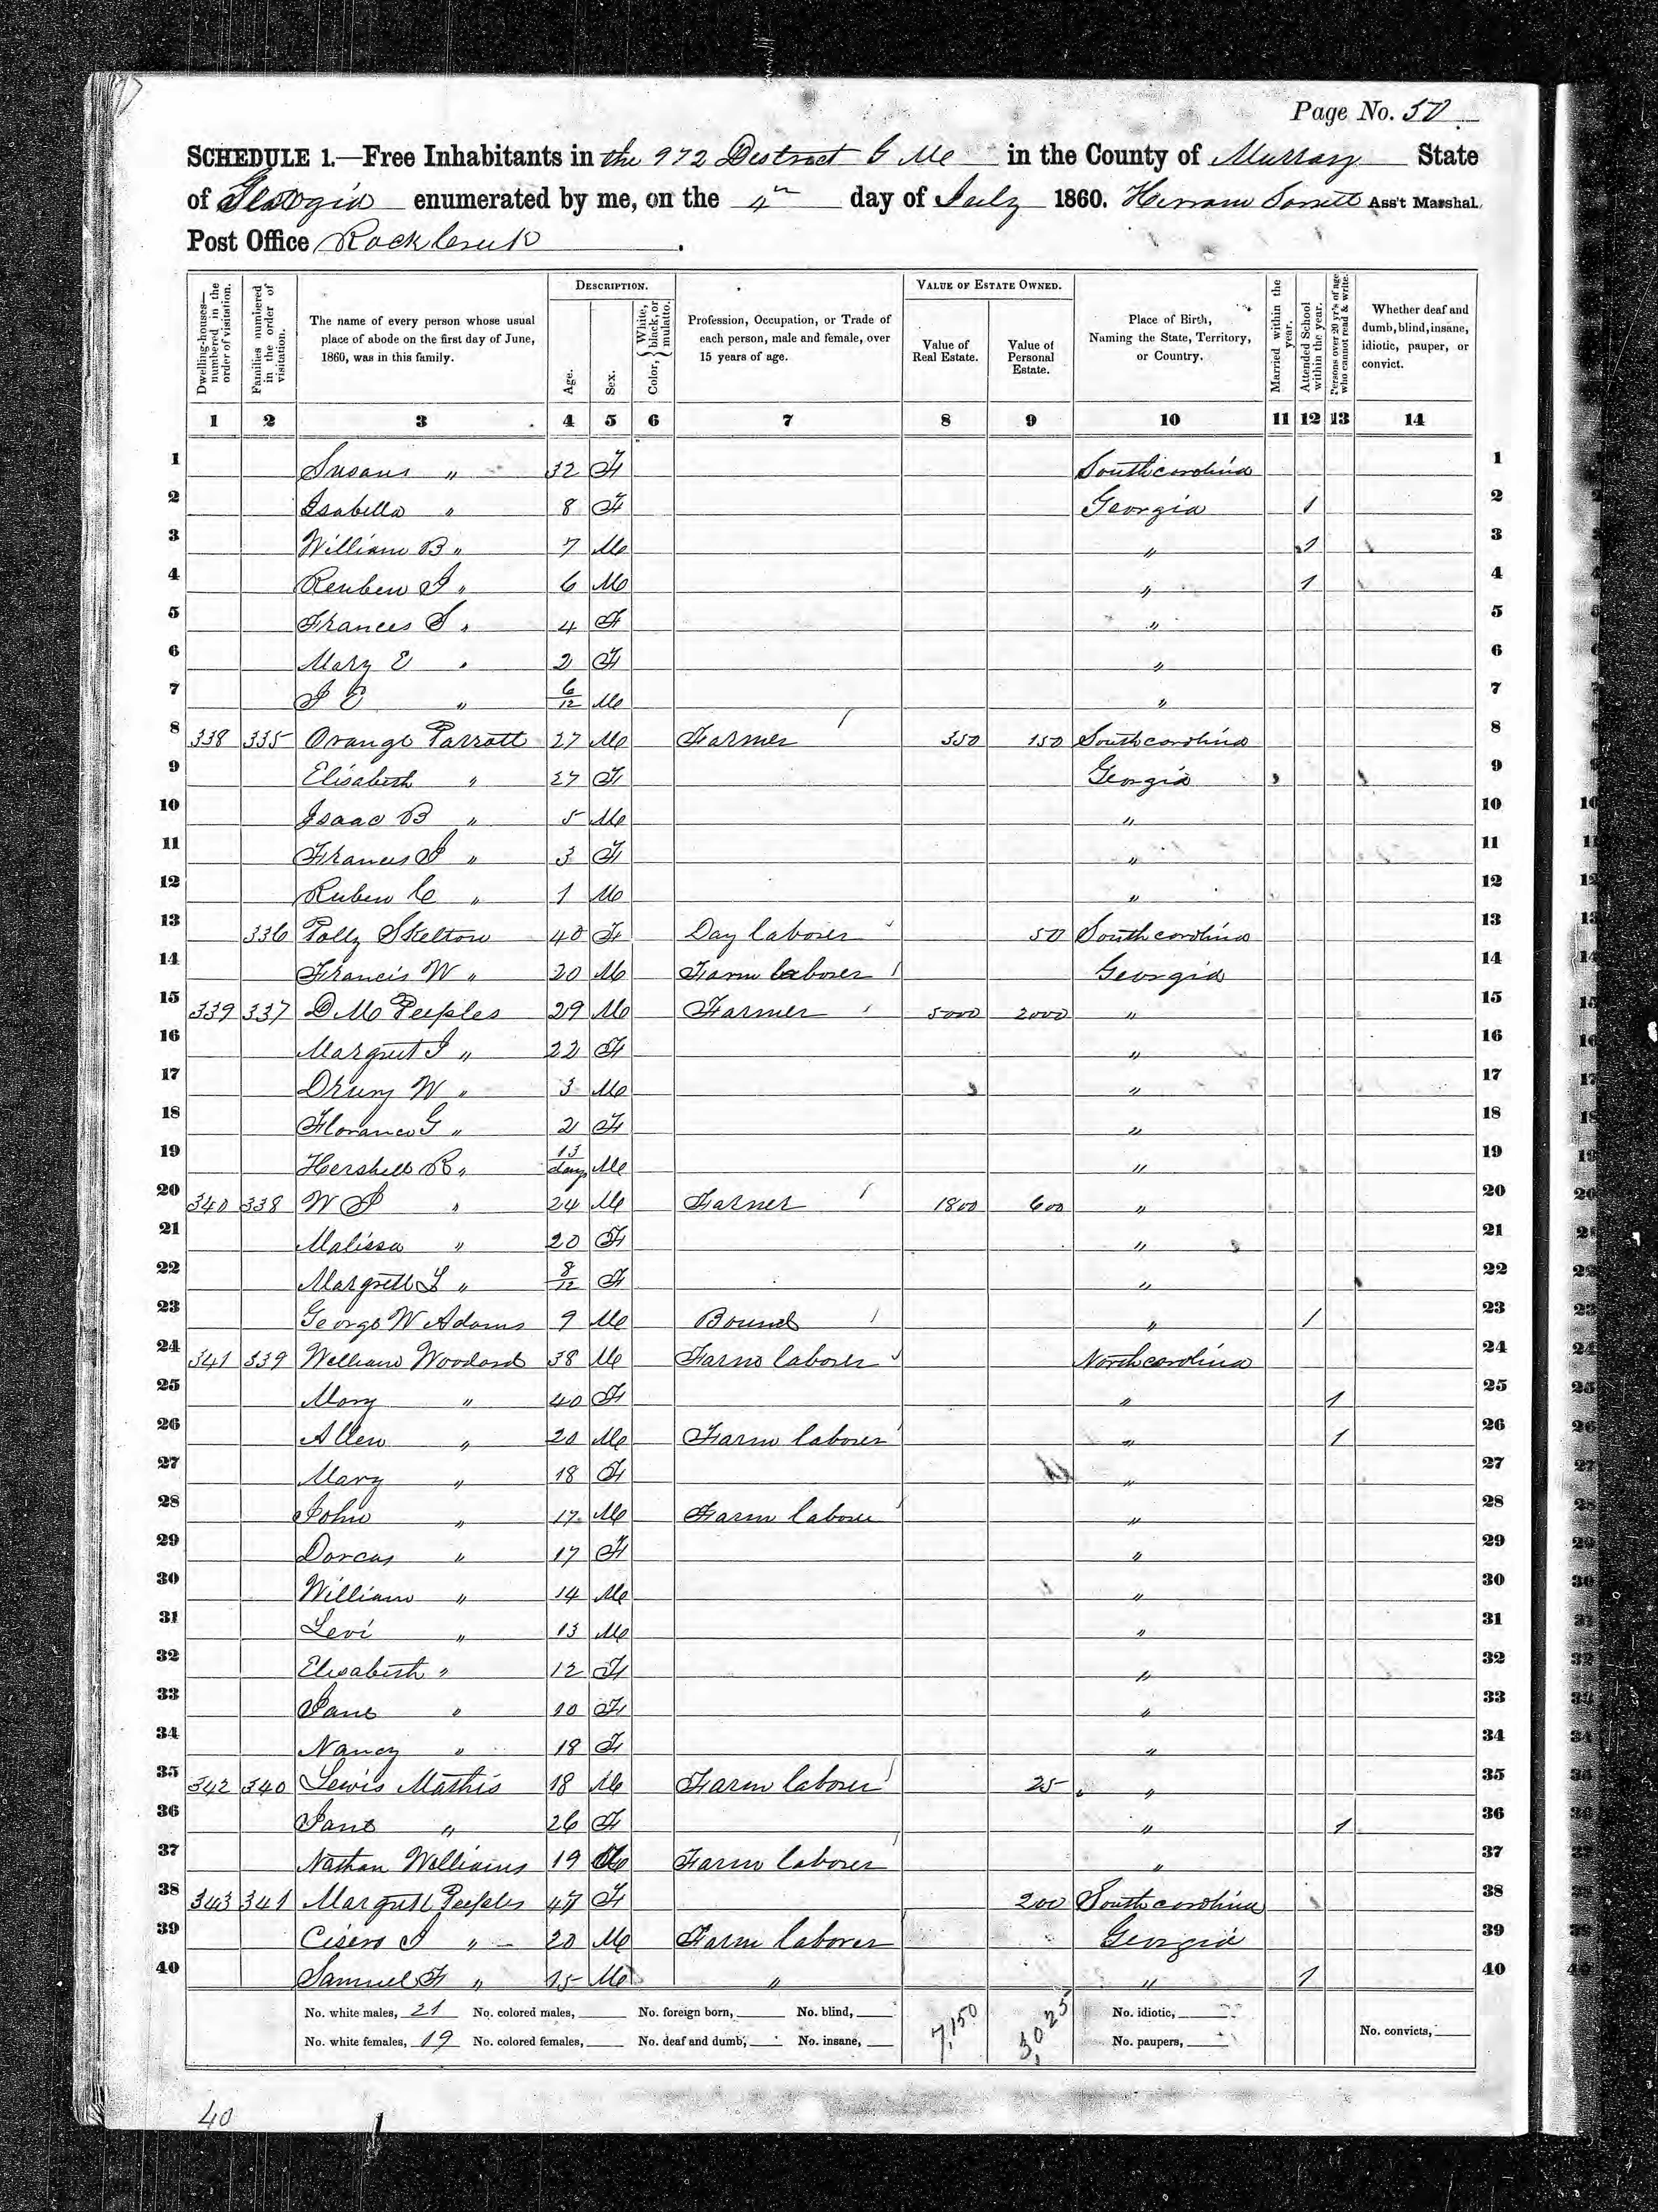 Page No. 50
SCHEDULE 1.—Free Inhabitants in the 972 District G M in the County of Murray State
of Georgia enumerated by me, on the 4th day of July 1860. Ass't Marshal.
Post Office Rock Creek.
Dwelling-houses—numbered in the order of visitation.
Families numbered in the order of visitation.
The name of every person whose usual place of abode on the first day of June, 1860, was in this family.
DESCRIPTION.
Age.
Sex.
Color, { White, black, or mulatto.
Profession, Occupation, or Trade of each person, male and female, over 15 years of age.
VALUE OF ESTATE OWNED.
Value of Real Estate.
Value of Personal Estate.
Place of Birth, Naming the State, Territory, or Country.
Married within the year.
Attended School within the year.
Persons over 20 yr's of age who cannot read & write.
Whether deaf and dumb, blind, insane, idiotic, pauper, or convict.
1 2 3 4 5 6 7 8 9 10 11 12 13 14
1 Susan " 32 F South carolina 1
2 Isabella " 8 F Georgia 1 2
3 William B " 7 M " 1 3
4 Reuben J " 6 M " 1 4
5 Frances S " 4 F " 5
6 Mary E " 2 F " 6
7 J E " 6/12 M " 7
8 338 335 Orange Parrott 27 M Farmer 350 150 South carolina 8
9 Elisabeth " 27 F Georgia 9
10 Isaac B " 5 M " 10
11 Frances J " 3 F " 11
12 Ruben C " 1 M " 12
13 336 Polly Skelton 40 F Day laborer 50 South carolina 13
14 Francis W " 20 M Farm laborer Georgia 14
15 339 337 D M Peeples 29 M Farmer 5000 2000 " 15
16 Margret J " 22 F " 16
17 Drury W " 3 M " 17
18 Florance G " 2 F " 18
19 Hershell R " 13 days M " 19
20 340 338 W P " 24 M Farmer 1800 600 " 20
21 Malissa " 20 F " 21
22 Margrett L " 8/12 F " 22
23 George W Adams 9 M Bound " 1 23
24 341 339 William Woodard 38 M Farm laborer North carolina 24
25 Mary " 40 F " 1 25
26 Allen " 20 M Farm laborer " 1 26
27 Mary " 18 F " 27
28 John " 17 M Farm laborer " 28
29 Dorcas " 17 F " 29
30 William " 14 M " 30
31 Levi " 13 M " 31
32 Elisabeth " 12 F " 32
33 Jane " 10 F " 33
34 Nancy " 18 F " 34
35 342 340 Lewis Mathis 18 M Farm laborer 25 " 35
36 Jane " 26 F " 1 36
37 Nathan Williams 19 M Farm laborer " 37
38 343 341 Margrett Peeples 47 F 200 South carolina 38
39 Cisero J " 20 M Farm laborer Georgia 39
40 Samuel F " 15 M " " 1 40
No. white males, 21 No. colored males, No. foreign born, No. blind, 7,150 3,025 No. idiotic,
No. white females, 19 No. colored females, No. deaf and dumb, No. insane, No. paupers, No. convicts,
40